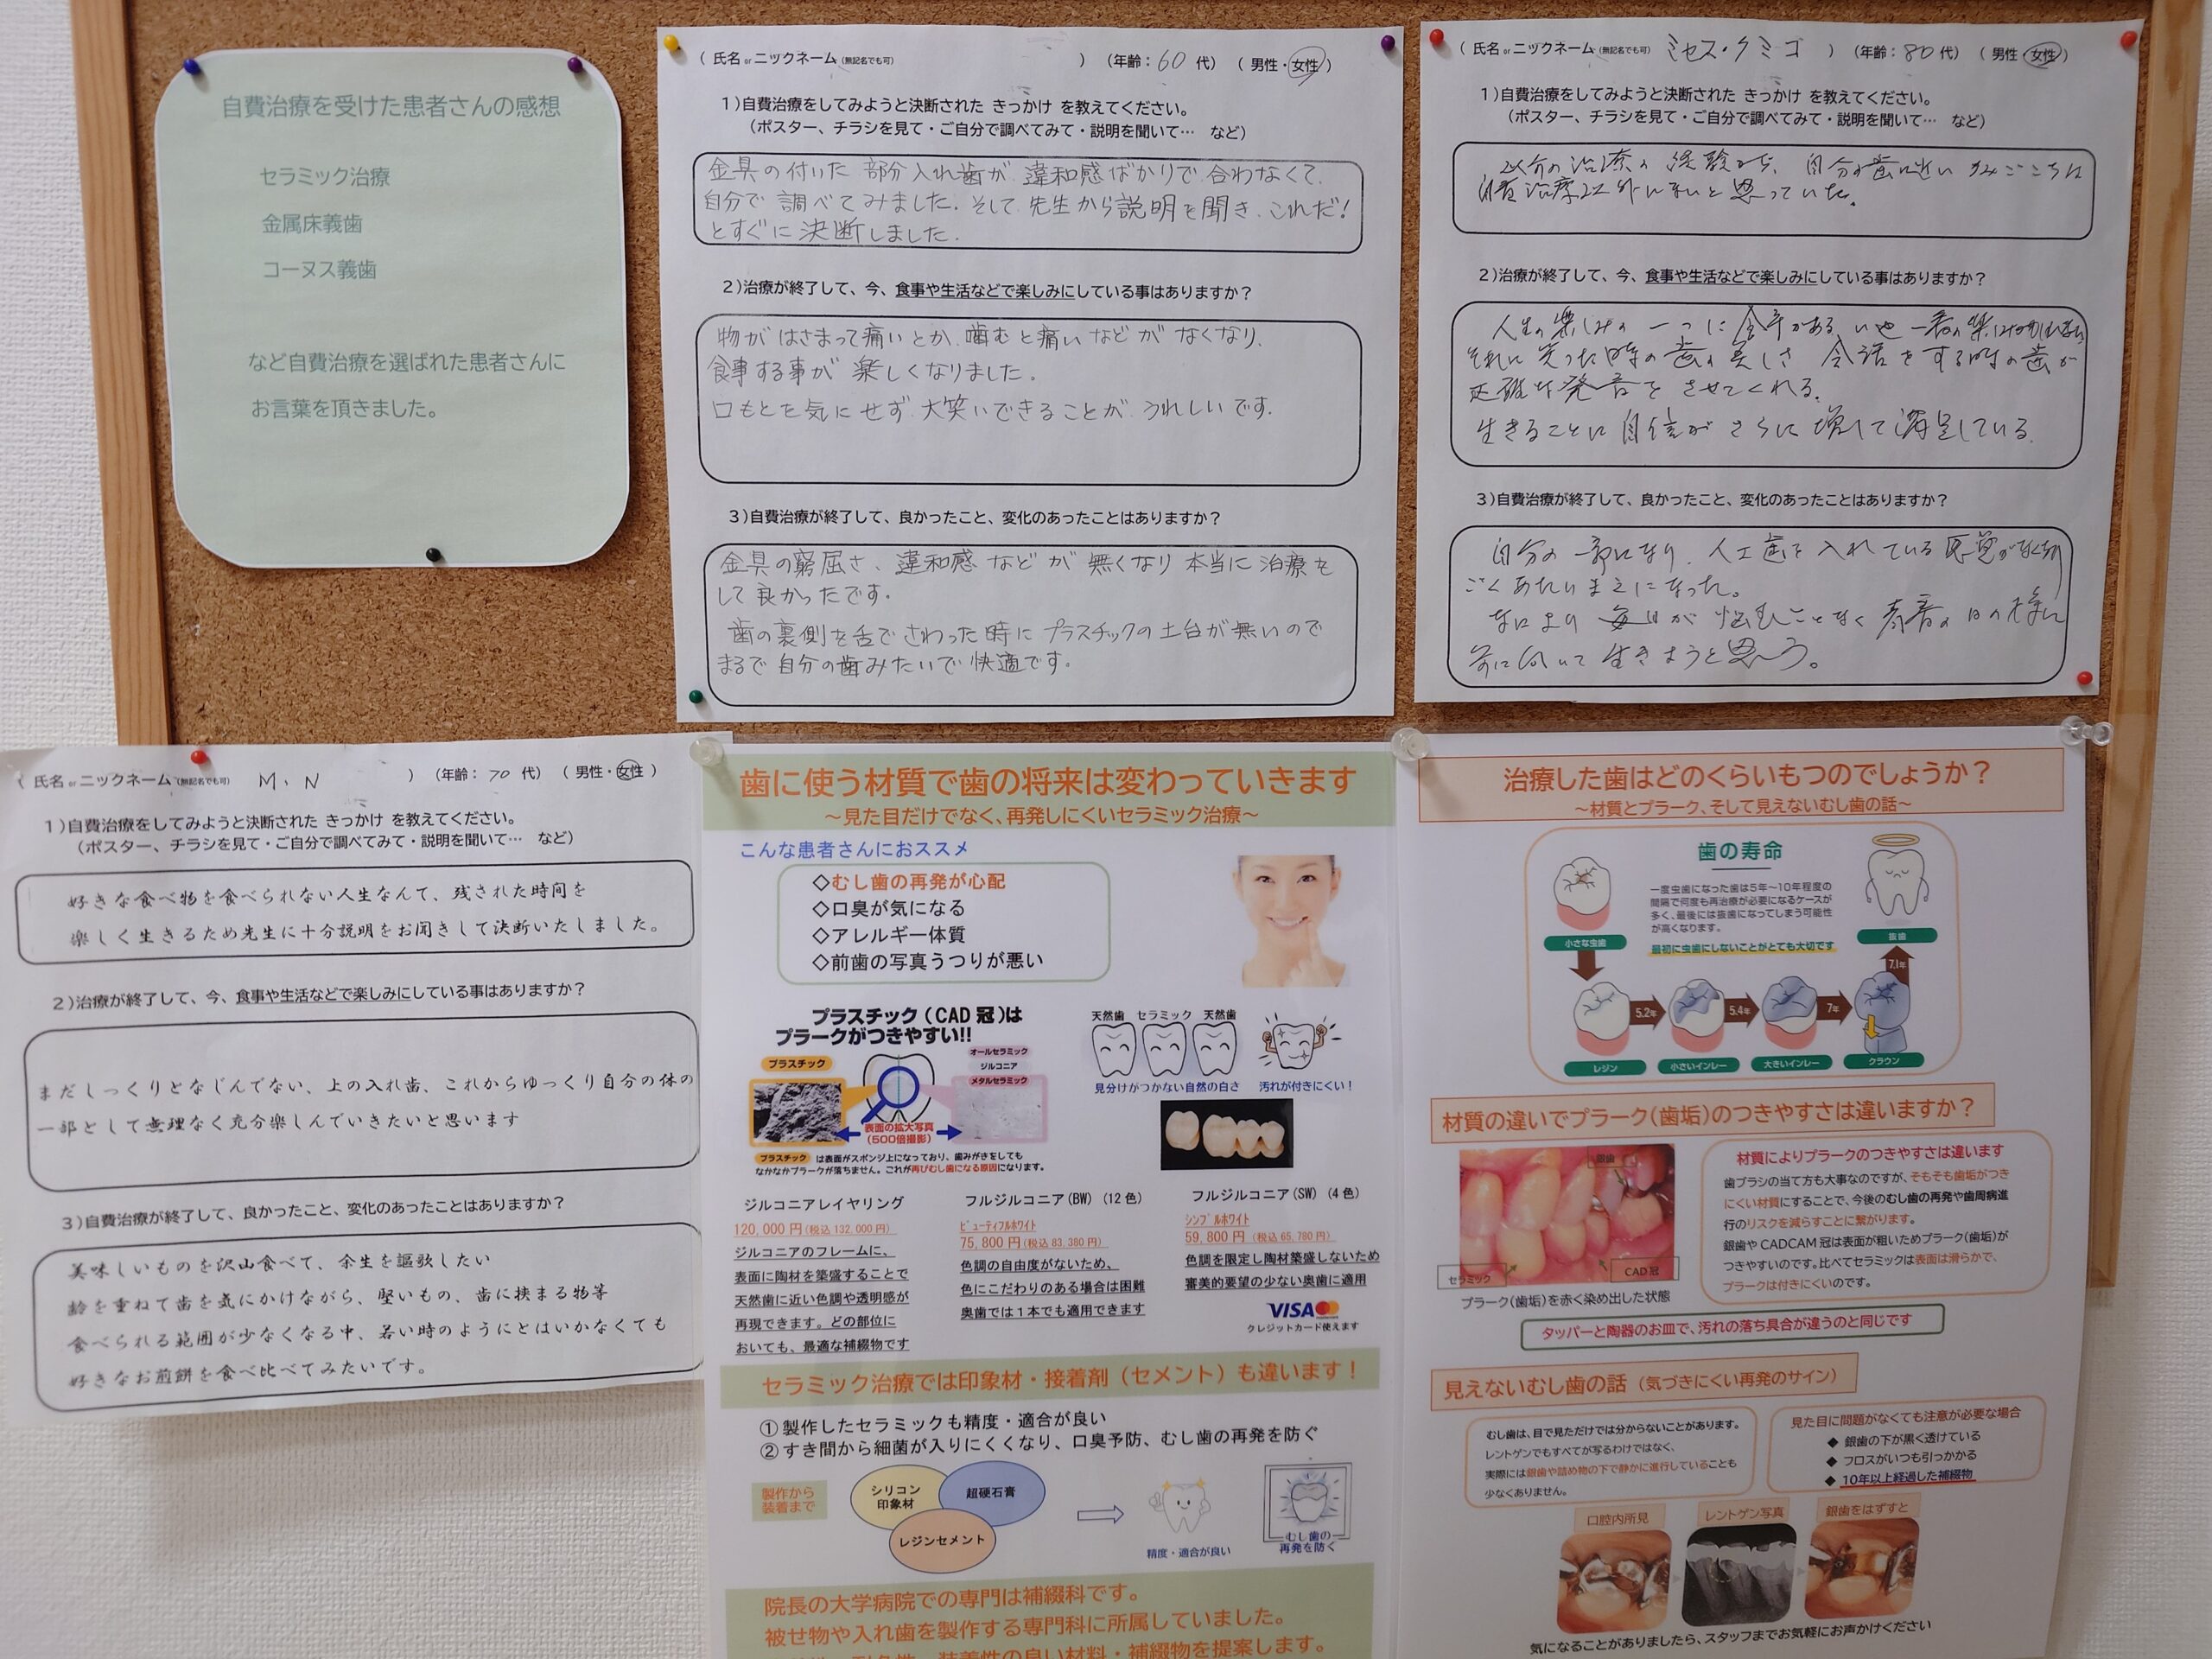 自費治療を受けた患者さんの感想
セラミック治療
金属床義歯
コーヌス義歯
など自費治療を選ばれた患者さんに
お言葉を頂きました。
( 氏名 or ニックネーム (無記名でも可) ) (年齢：60 代) ( 男性・女性 )
1)自費治療をしてみようと決断された きっかけ を教えてください。
(ポスター、チラシを見て・ご自分で調べてみて・説明を聞いて… など)
金具の付いた 部分入れ歯が 違和感ばかりで 合わなくて、
自分で 調べてみました. そして 先生から説明を聞き、これだ!
とすぐに 決断しました.
2)治療が終了して、今、食事や生活などで楽しみにしている事はありますか？
物が はさまって痛いとか、噛むと痛い などが なくなり、
食事する事が 楽しくなりました.
口もとを気にせず 大笑いできることが うれしいです.
3)自費治療が終了して、良かったこと、変化のあったことはありますか？
金具の窮屈さ、違和感 などが 無くなり 本当に 治療を
して良かったです.
歯の裏側を舌でさわった時に プラスチックの土台が無いので
まるで 自分の歯みたいで 快適です.
( 氏名 or ニックネーム (無記名でも可) ミセス・クミコ ) (年齢：80 代) ( 男性 女性 )
1)自費治療をしてみようと決断された きっかけ を教えてください。
(ポスター、チラシを見て・ご自分で調べてみて・説明を聞いて… など)
治療の経験から、自分の歯に近い かみごこちは
自費治療以外にないと思っていた。
2)治療が終了して、今、食事や生活などで楽しみにしている事はありますか？
人生の楽しみの 一つに 食事がある
それに 笑った時の歯の美しさ 会話をする時の歯が
正確な発音を させてくれる.
生きることに 自信が さらに 増して 満足している.
3)自費治療が終了して、良かったこと、変化のあったことはありますか？
自分の一部になり、人工歯を入れている 感覚がなくなり
ごくあたりまえになった。
なにより 毎日が 悩むことなく 青春の日の様に
前に向いて 生きようと思う。
( 氏名 or ニックネーム (無記名でも可) M、N ) (年齢：70 代) ( 男性・女性 )
1)自費治療をしてみようと決断された きっかけ を教えてください。
(ポスター、チラシを見て・ご自分で調べてみて・説明を聞いて… など)
好きな食べ物を食べられない人生なんて、残された時間を
楽しく生きるため先生に十分説明をお聞きして決断いたしました。
2)治療が終了して、今、食事や生活などで楽しみにしている事はありますか？
まだしっくりとなじんでない、上の入れ歯、これからゆっくり自分の体の
一部として無理なく充分楽しんでいきたいと思います
3)自費治療が終了して、良かったこと、変化のあったことはありますか？
美味しいものを沢山食べて、余生を謳歌したい
齢を重ねて歯を気にかけながら、堅いもの、歯に挟まる物等
食べられる範囲が少なくなる中、若い時のようにとはいかなくても
好きなお煎餅を食べ比べてみたいです。
歯に使う材質で歯の将来は変わっていきます
～見た目だけでなく、再発しにくいセラミック治療～
こんな患者さんにおススメ
◇むし歯の再発が心配
◇口臭が気になる
◇アレルギー体質
◇前歯の写真うつりが悪い
プラスチック（CAD 冠）は
プラークがつきやすい!!
プラスチック
オールセラミック
ジルコニア
メタルセラミック
表面の拡大写真
(500倍撮影)
プラスチック は表面がスポンジ上になっており、歯みがきをしても
なかなかプラークが落ちません。これが再びむし歯になる原因になります。
天然歯 セラミック 天然歯
見分けがつかない自然の白さ 汚れが付きにくい！
ジルコニアレイヤリング
120,000 円(税込 132,000 円)
ジルコニアのフレームに、
表面に陶材を築盛することで
天然歯に近い色調や透明感が
再現できます。どの部位に
おいても、最適な補綴物です
フルジルコニア(BW) (12 色)
ビューティフルホワイト
75,800 円(税込 83,380 円)
色調の自由度がないため、
色にこだわりのある場合は困難
奥歯では1本でも適用できます
フルジルコニア(SW) (4 色)
シンプルホワイト
59,800 円 (税込 65,780 円)
色調を限定し陶材築盛しないため
審美的要望の少ない奥歯に適用
VISA
クレジットカード使えます
セラミック治療では印象材・接着剤（セメント）も違います！
① 製作したセラミックも精度・適合が良い
② すき間から細菌が入りにくくなり、口臭予防、むし歯の再発を防ぐ
製作から
装着まで
シリコン
印象材
超硬石膏
レジンセメント
精度・適合が良い
むし歯の
再発を防ぐ
院長の大学病院での専門は補綴科です。
被せ物や入れ歯を製作する専門科に所属していました。
装着性の良い材料・補綴物を提案します。
治療した歯はどのくらいもつのでしょうか？
～材質とプラーク、そして見えないむし歯の話～
歯の寿命
一度虫歯になった歯は5年～10年程度の
間隔で何度も再治療が必要になるケースが
多く、最後には抜歯になってしまう可能性
が高くなります。
最初に虫歯にしないことがとても大切です
小さな虫歯
抜歯
7.1年
5.2年
5.4年
7年
レジン
小さいインレー
大きいインレー
クラウン
材質の違いでプラーク(歯垢)のつきやすさは違いますか？
銀歯
セラミック
CAD 冠
プラーク(歯垢)を赤く染め出した状態
材質によりプラークのつきやすさは違います
歯ブラシの当て方も大事なのですが、そもそも歯垢がつき
にくい材質にすることで、今後のむし歯の再発や歯周病進
行のリスクを減らすことに繋がります。
銀歯や CADCAM 冠は表面が粗いためプラーク(歯垢)が
つきやすいのです。比べてセラミックは表面は滑らかで、
プラークは付きにくいのです。
タッパーと陶器のお皿で、汚れの落ち具合が違うのと同じです
見えないむし歯の話（気づきにくい再発のサイン）
むし歯は、目で見ただけでは分からないことがあります。
レントゲンでもすべてが写るわけではなく、
実際には銀歯や詰め物の下で静かに進行していることも
少なくありません。
見た目に問題がなくても注意が必要な場合
◆ 銀歯の下が黒く透けている
◆ フロスがいつも引っかかる
◆ 10年以上経過した補綴物
口腔内所見
レントゲン写真
銀歯をはずすと
気になることがありましたら、スタッフまでお気軽にお声かけください